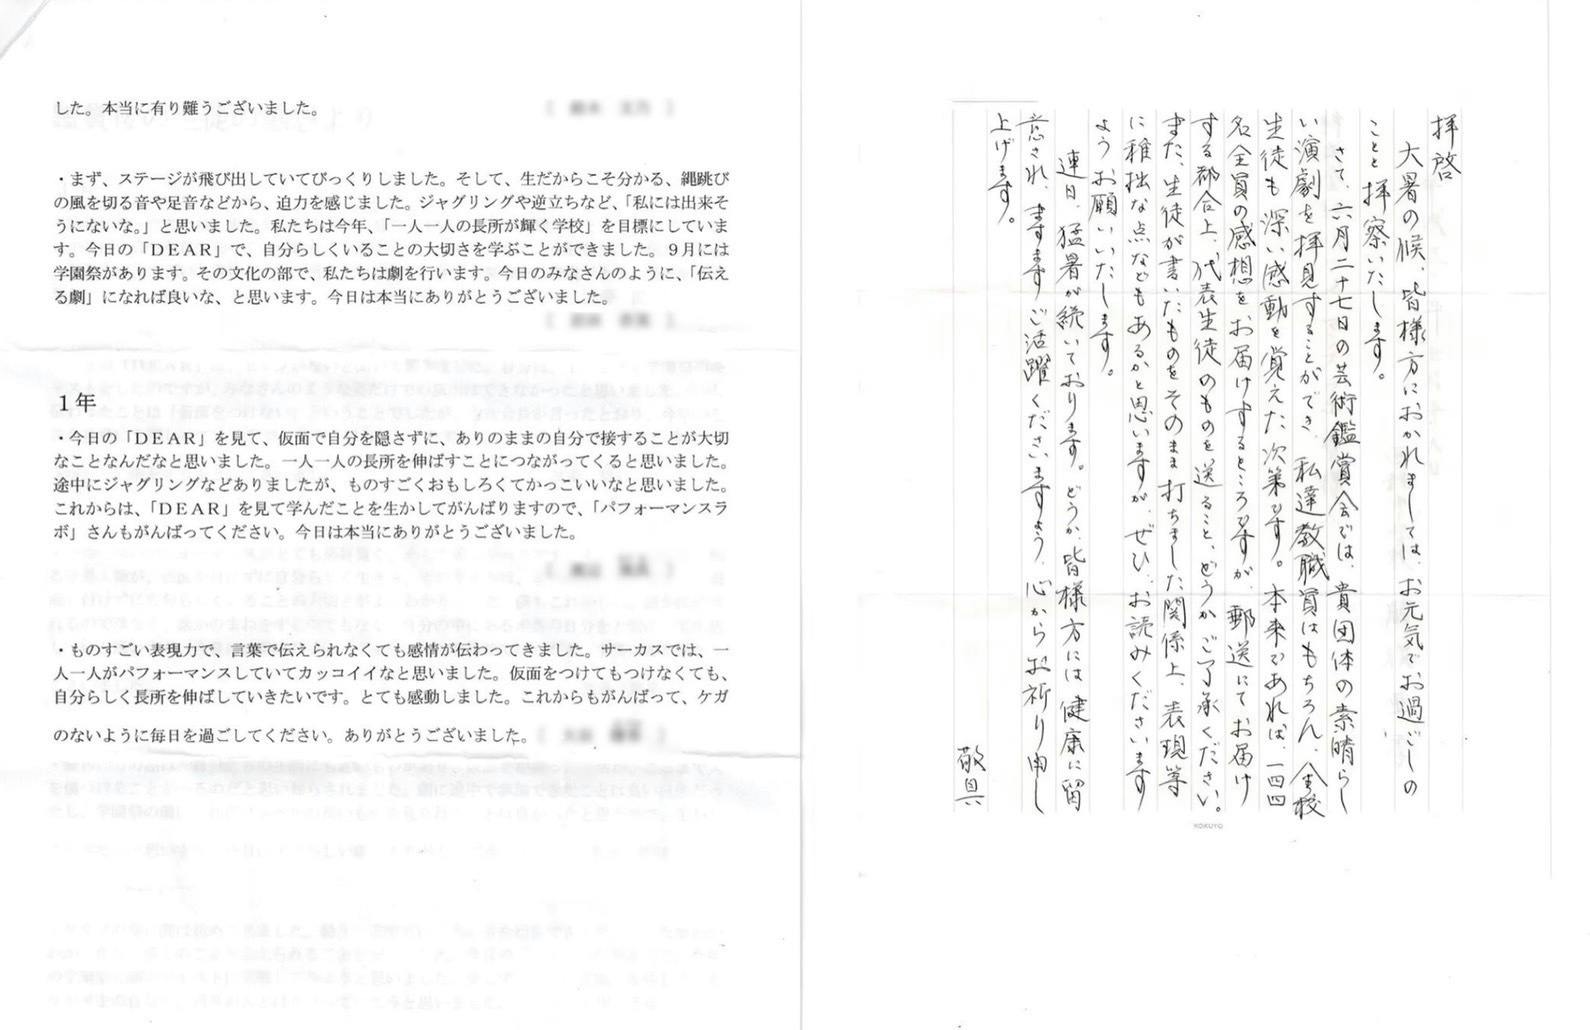 した。本当に有り難うございました。
・まず、ステージが飛び出していてびっくりしました。そして、生だからこそ分かる、縄跳び
の風を切る音や足音などから、迫力を感じました。ジャグリングや逆立ちなど、「私には出来そ
うにないな。」と思いました。私たちは今年、「一人一人の長所が輝く学校」を目標にしていま
す。今日の「DEAR」で、自分らしくいることの大切さを学ぶことができました。９月には
学園祭があります。その文化の部で、私たちは劇を行います。今日のみなさんのように、「伝え
る劇」になれば良いな、と思います。今日は本当にありがとうございました。
１年
・今日の「DEAR」を見て、仮面で自分を隠さずに、ありのままの自分で接することが大切
なことなんだなと思いました。一人一人の長所を伸ばすことにつながってくると思いました。
途中にジャグリングなどありましたが、ものすごくおもしろくてかっこいいなと思いました。
これからは、「DEAR」を見て学んだことを生かしてがんばりますので、「パフォーマンスラ
ボ」さんもがんばってください。今日は本当にありがとうございました。
・ものすごい表現力で、言葉で伝えられなくても感情が伝わってきました。サーカスでは、一
人一人がパフォーマンスしていてカッコイイなと思いました。仮面をつけてもつけなくても、
自分らしく長所を伸ばしていきたいです。とても感動しました。これからもがんばって、ケガ
のないように毎日を過ごしてください。ありがとうございました。
拝啓
大暑の候、皆様方におかれましては、お元気でお過ごしの
ことと拝察いたします。
さて、六月二十七日の芸術鑑賞会では、貴団体の素晴らし
い演劇を拝見することができ、私達教職員はもちろん、全校
生徒も深い感動を覚えた次第です。本来であれば、一四四
名全員の感想をお届けするところですが、郵送にてお届け
する都合上、代表生徒のものを送ること、どうかご了承ください。
また、生徒が書いたものをそのまま打ちました関係上、表現等
に稚拙な点などもあるかと思いますが、ぜひ、お読みくださいます
ようお願いいたします。
連日、猛暑が続いております。どうか、皆様方には健康に留
意され、ますますご活躍くださいますよう、心からお祈り申し
上げます。
敬具
KOKUYO